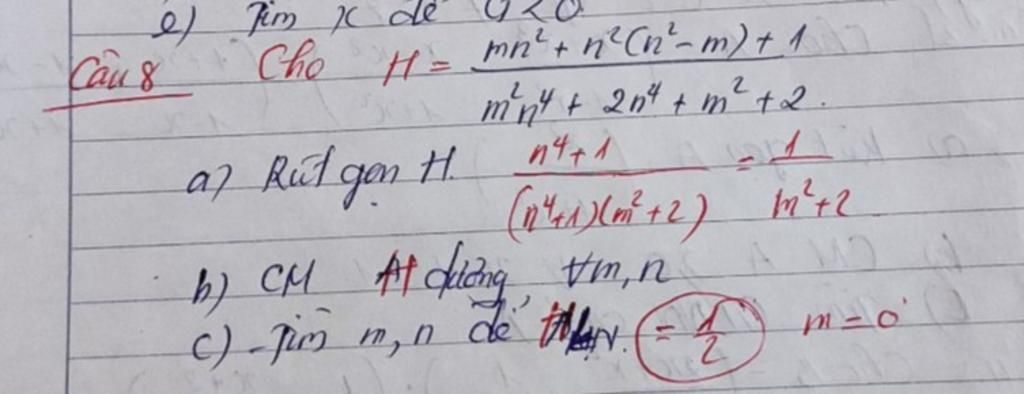 e) Tìm x để G<0
Câu 8 Cho H = \frac{mn² + n²(n²-m) + 1}{m²n⁴ + 2n⁴ + m² + 2}.
a) Rút gọn H. \frac{n⁴+1}{(n⁴+1)(m²+2)} = \frac{1}{m²+2}
b) CM H dương, ∀m,n
c) Tìm m, n để = \frac{1}{2} m = 0